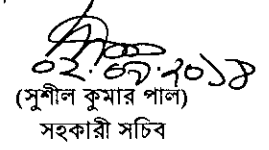 ০২.০৭.২০১৪
(সুশীল কুমার পাল)
সহকারী সচিব